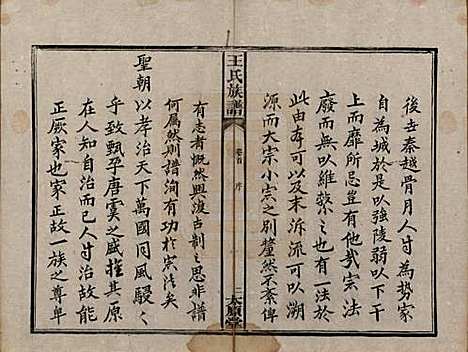 後世秦越骨月人寸為勢家
自為城於是以強陵弱以下干
上而靡所忌豈有他哉宗法
廢而無以維繫之也有一法於
此由本可以及末泝流可以溯
源而大宗小宗之別釐然不紊俾
王氏族譜
卷首
序
二
太原堂
有志者慨然興復古制之思非譜
何屬然則譜洵有功於宗法矣
聖朝以孝治天下萬國同風駸駸
乎致甄孕唐虞之盛推其原
在人知自治而已人寸治故能
正厥家也家正故一族之尊卑